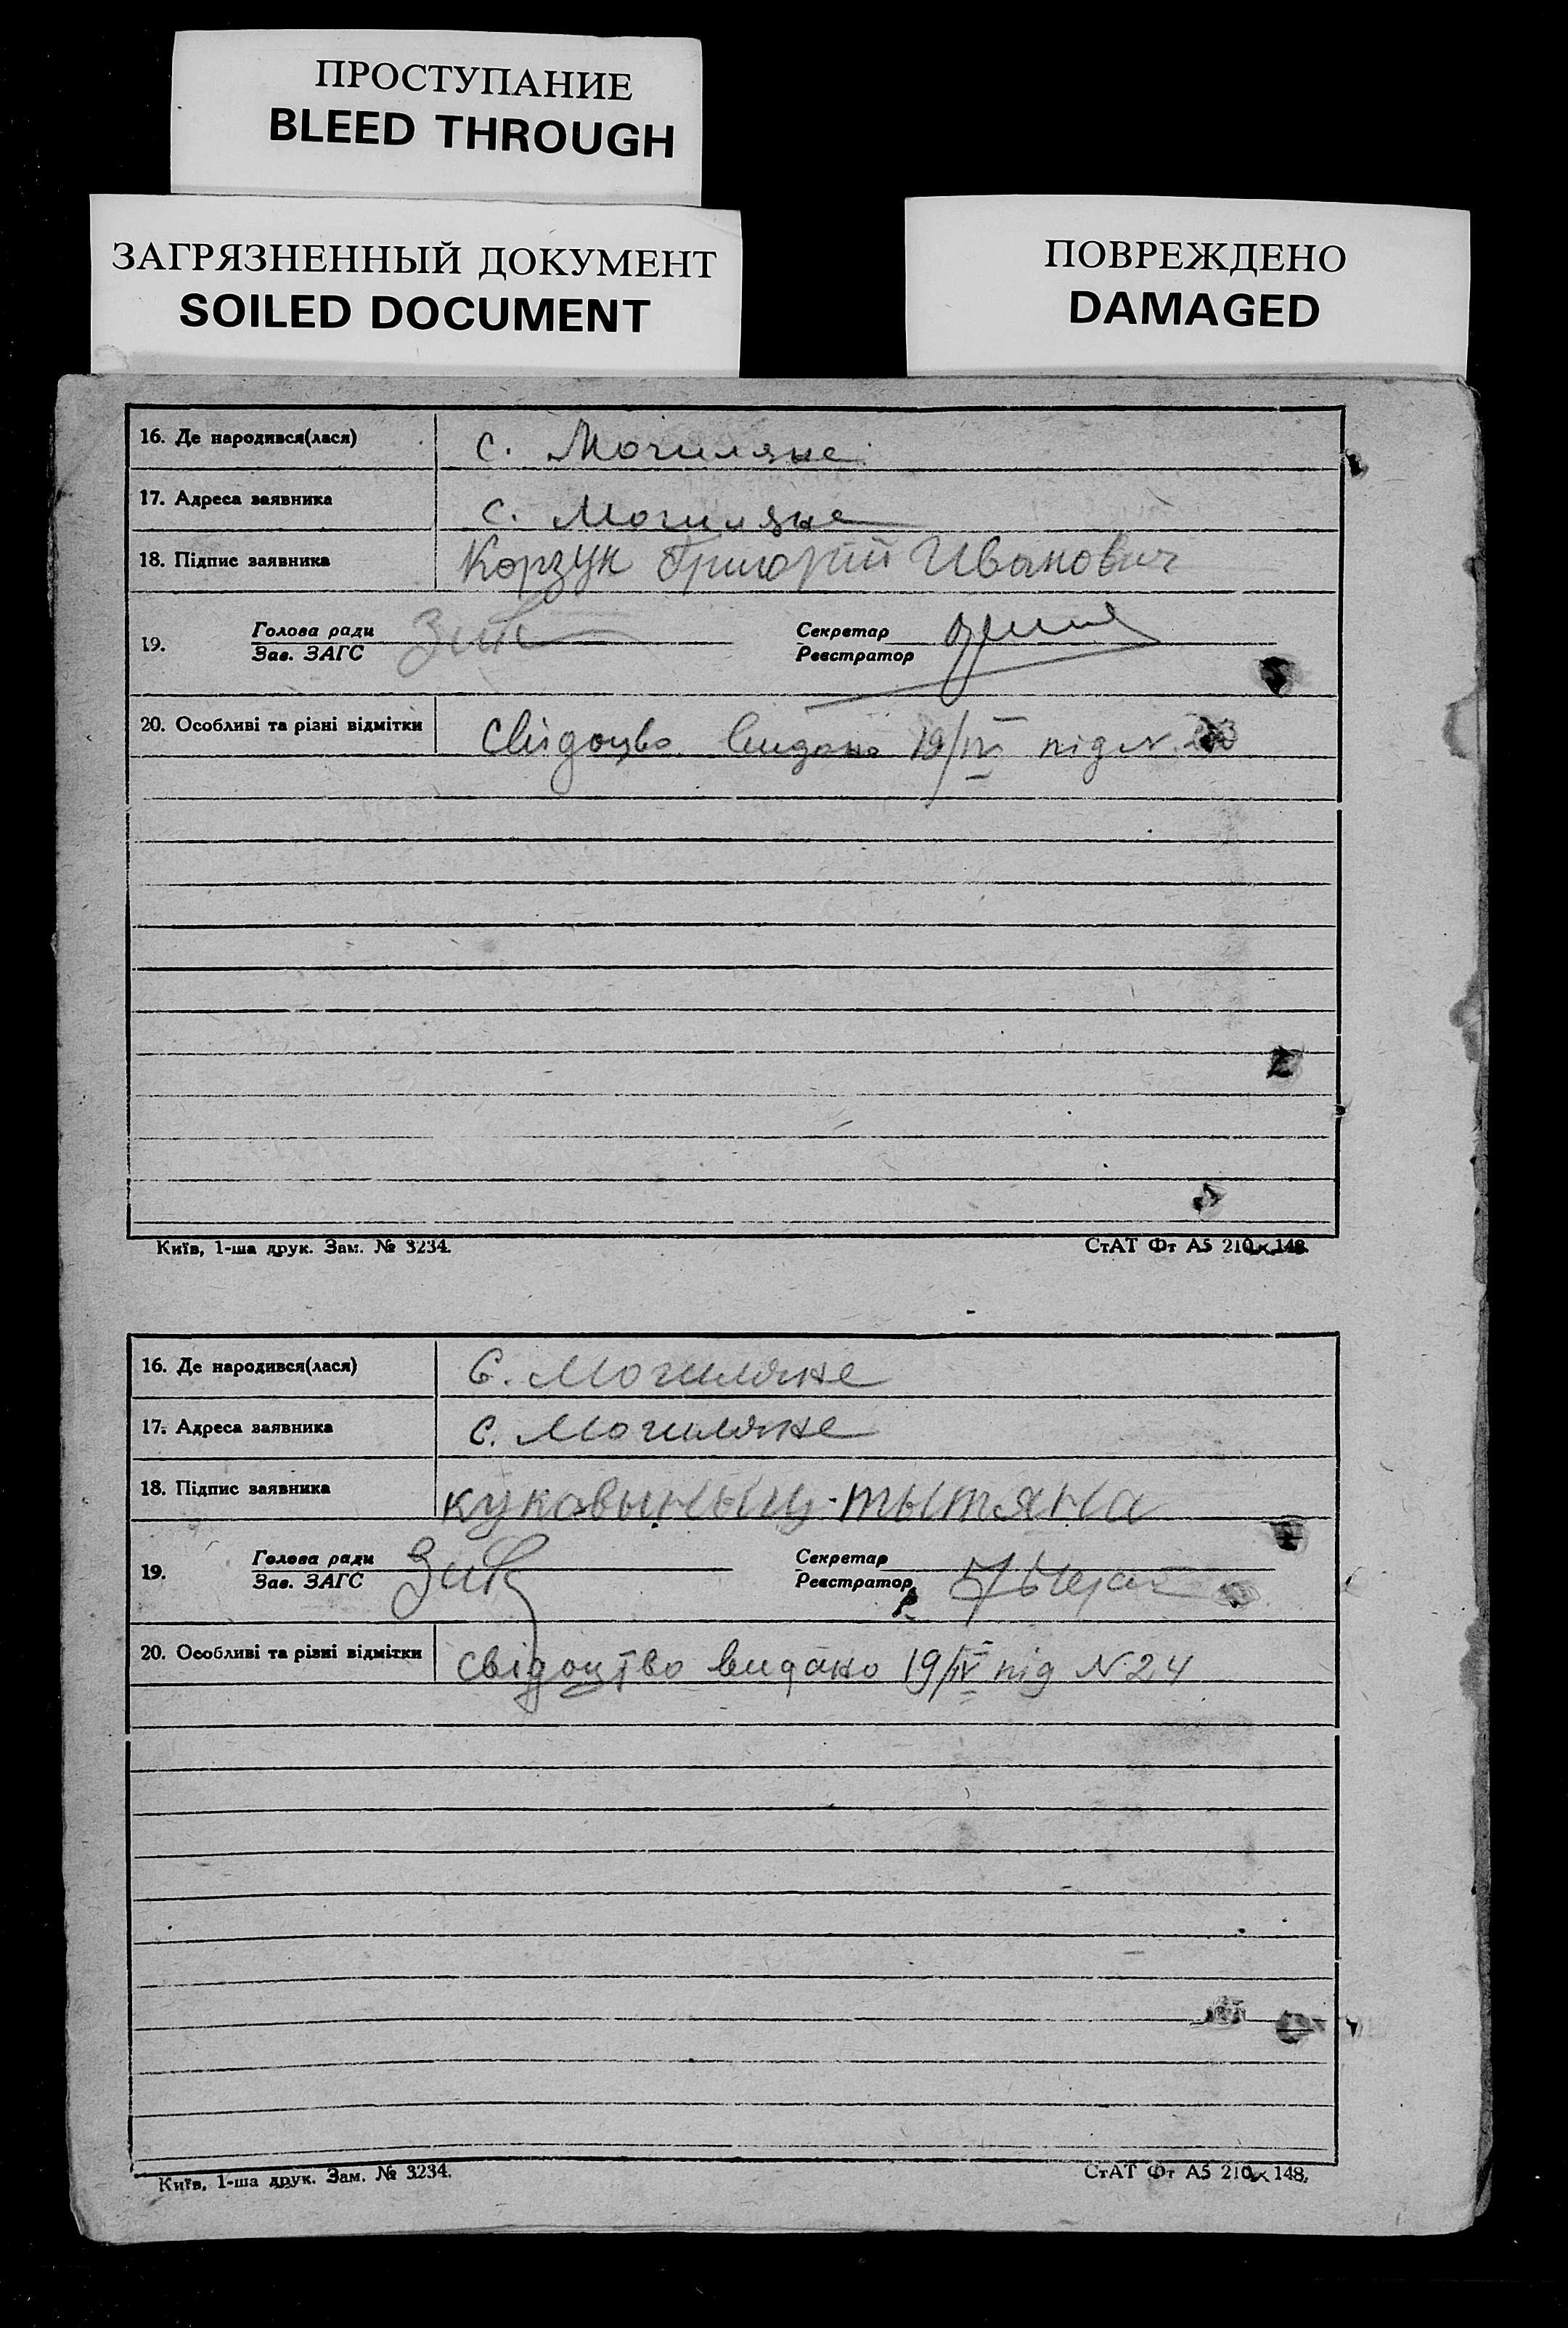 ПРОСТУПАНИЕ
BLEED THROUGH
ЗАГРЯЗНЕННЫЙ ДОКУМЕНТ
SOILED DOCUMENT
ПОВРЕЖДЕНО
DAMAGED
16. Де народився(лася) с. Могиляне
17. Адреса заявника с. Могиляне
18. Підпис заявника Корзун Григорій Иванович
19. Голова ради Секретар
Зав. ЗАГС Реєстратор
20. Особливі та різні відмітки Свідоцво видано 19/IV під N.
Київ, 1-ша друк. Зам. № 3234. СтАТ Фт А5 210×148.
16. Де народився(лася) С. Могиляне
17. Адреса заявника с. Могиляне
18. Підпис заявника
19. Голова ради Секретар
Зав. ЗАГС Реєстратор
20. Особливі та різні відмітки свідоцтво видано 19/IV під N 24
Київ, 1-ша друк. Зам. № 3234. СтАТ Фт А5 210×148.